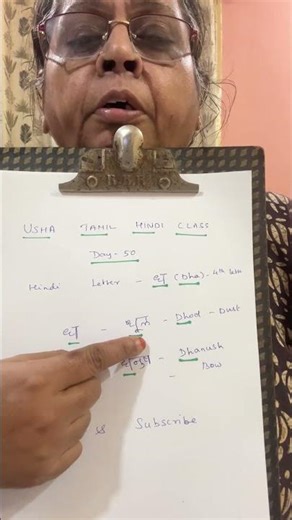 USHA TAMIL HINDI CLASS
Day-50
Hindi Letter - ध (Dha) - 4th
ध - - Dhool - Dust
धनुष - Dhanush
Bow
Subscribe